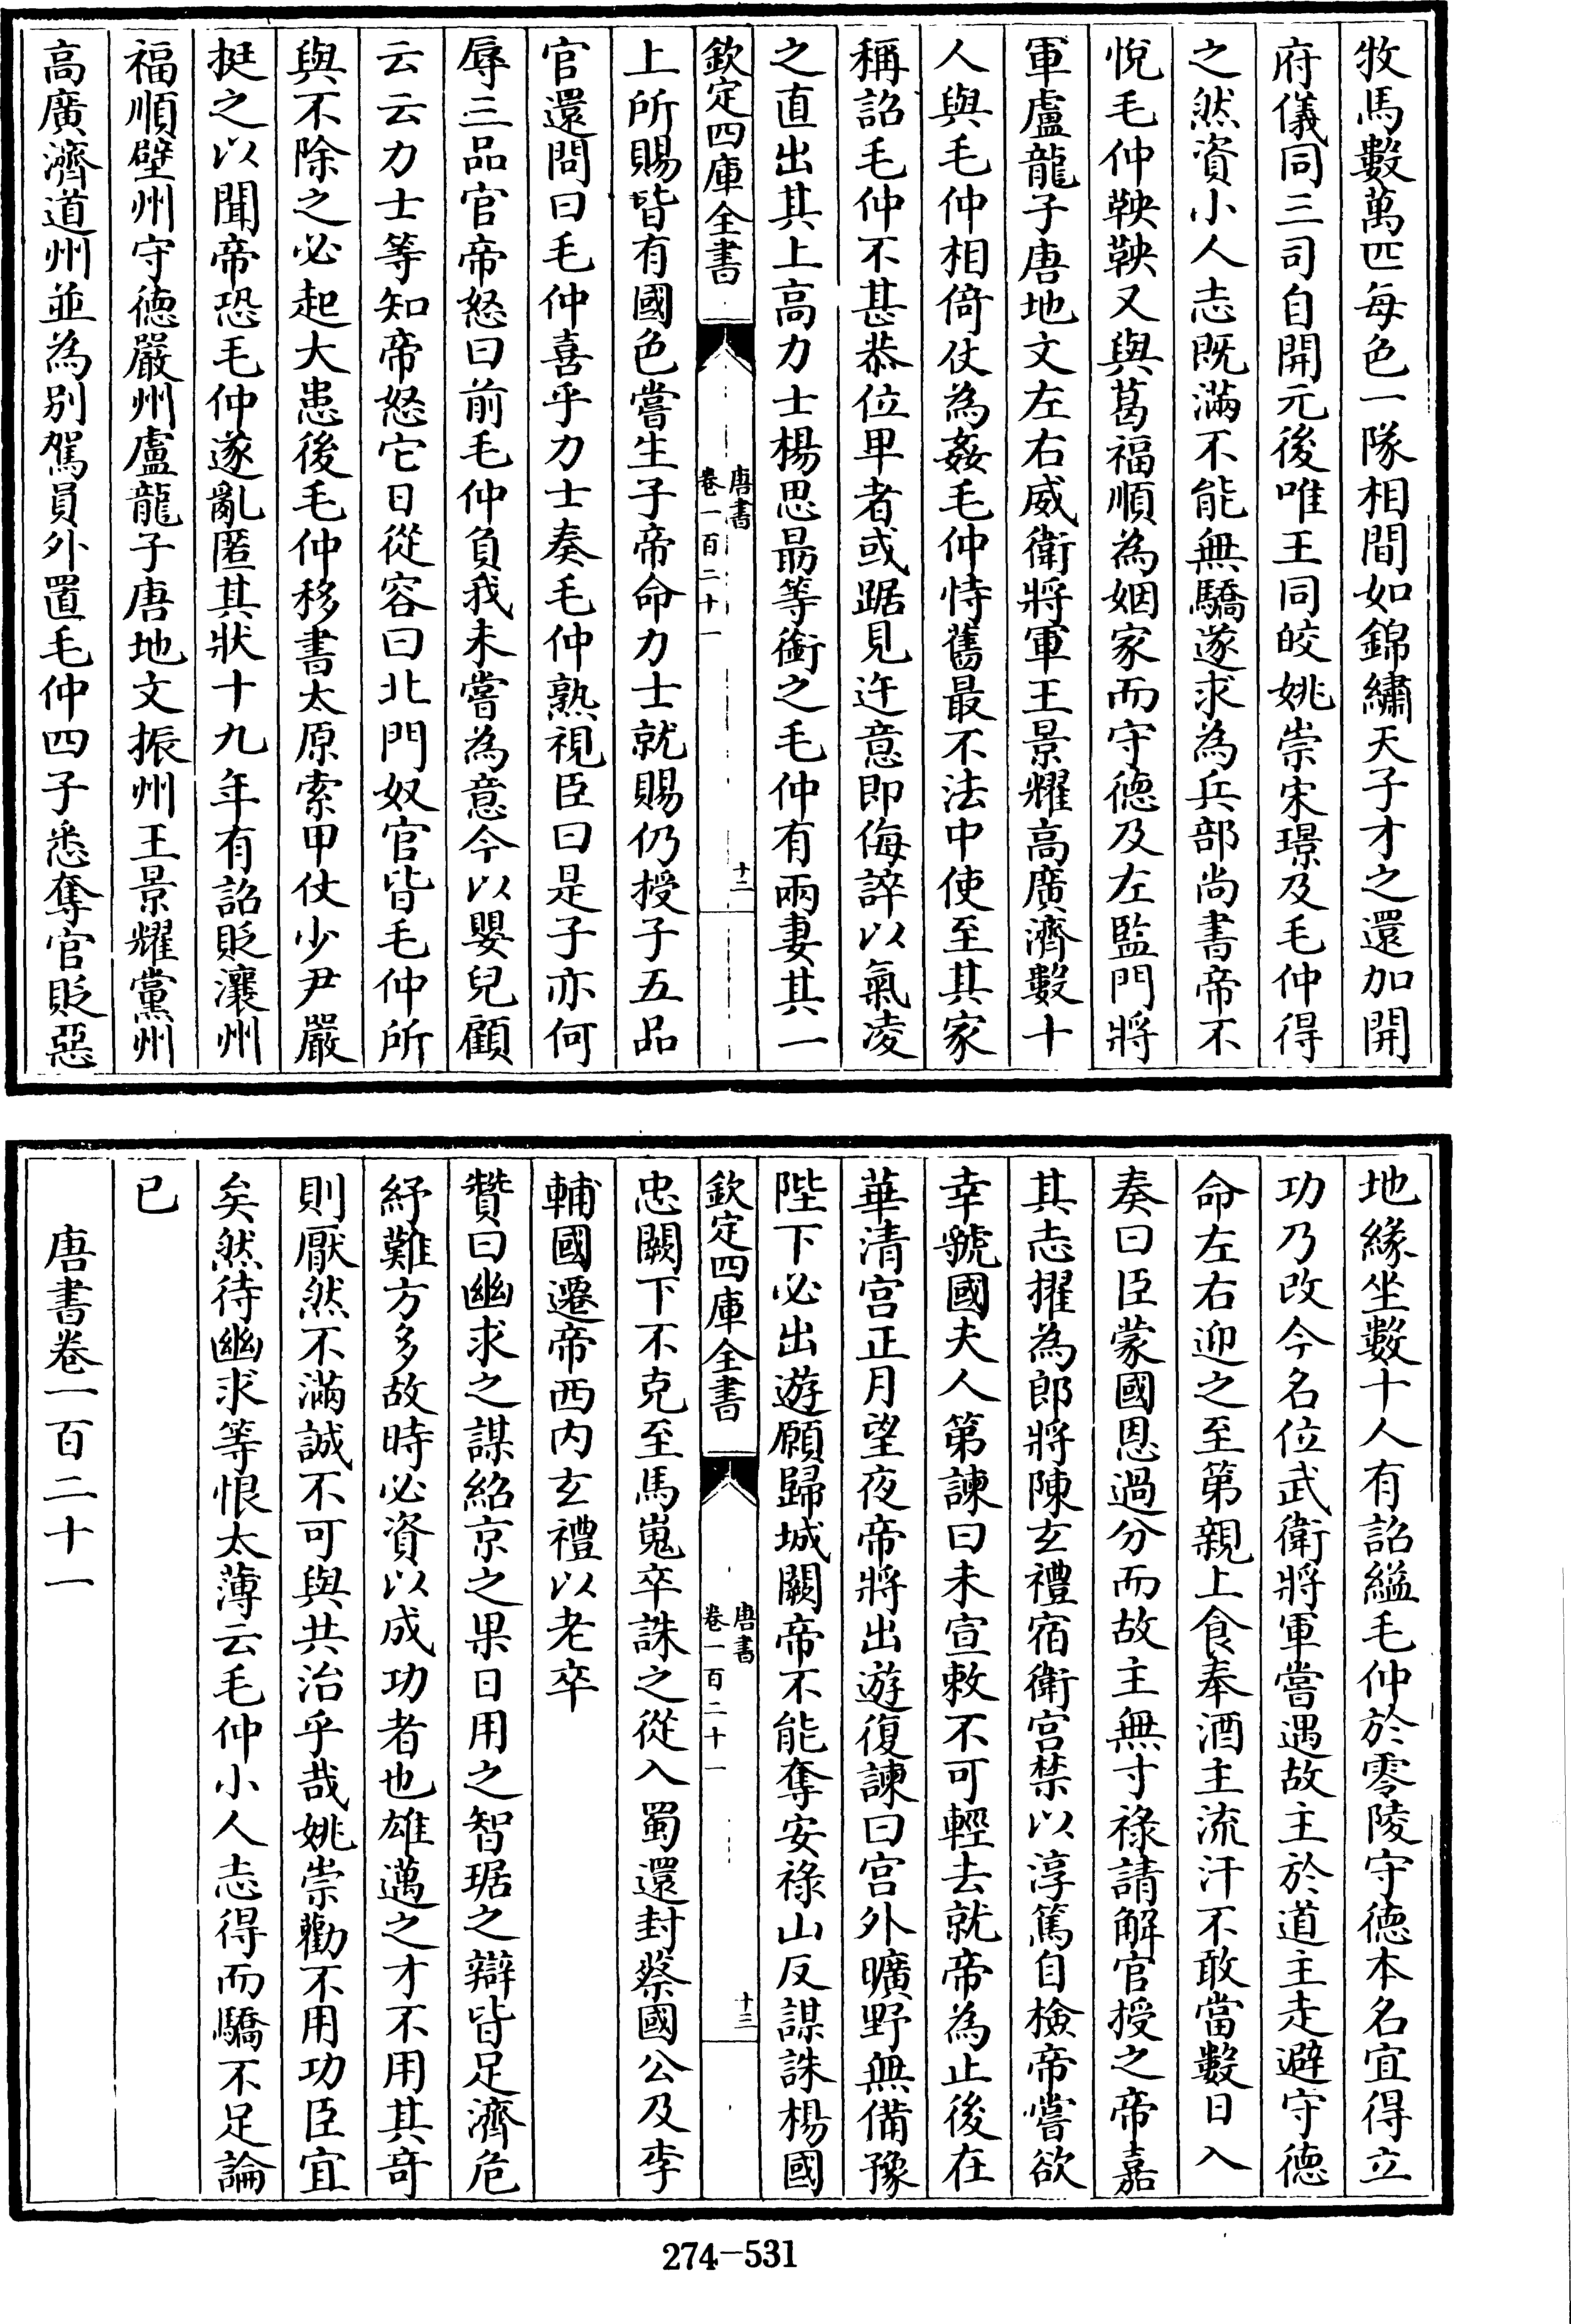 牧馬數萬匹每色一隊相間如錦繡天子才之還加開
府儀同三司自開元後唯王同皎姚崇宋璟及毛仲得
之然資小人志既滿不能無驕遂求為兵部尚書帝不
悅毛仲鞅鞅又與葛福順為姻家而守德及左監門將
軍盧龍子唐地文左右威衛將軍王景耀高廣濟數十
人與毛仲相倚仗為姦毛仲恃舊最不法中使至其家
稱詔毛仲不甚恭位卑者或踞見迕意即侮誶以氣凌
之直出其上高力士楊思勗等銜之毛仲有兩妻其一
欽定四庫全書
唐書
卷一百二十一
十二
上所賜皆有國色嘗生子帝命力士就賜仍授子五品
官還問曰毛仲喜乎力士奏毛仲熟視臣曰是子亦何
辱三品官帝怒曰前毛仲負我未嘗為意今以嬰兒顧
云云力士等知帝怒它日從容曰北門奴官皆毛仲所
與不除之必起大患後毛仲移書太原索甲仗少尹嚴
挺之以聞帝恐毛仲遂亂匿其狀十九年有詔貶瀼州
福順壁州守德嚴州盧龍子唐地文振州王景耀黨州
高廣濟道州並為別駕員外置毛仲四子悉奪官貶惡
地緣坐數十人有詔縊毛仲於零陵守德本名宜得立
功乃改今名位武衛將軍嘗遇故主於道主走避守德
命左右迎之至第親上食奉酒主流汗不敢當數日入
奏曰臣蒙國恩過分而故主無寸祿請解官授之帝嘉
其志擢為郎將陳玄禮宿衛宮禁以淳篤自檢帝嘗欲
幸虢國夫人第諫曰未宣敕不可輕去就帝為止後在
華清宮正月望夜帝將出遊復諫曰宮外曠野無備豫
陛下必出遊願歸城闕帝不能奪安祿山反謀誅楊國
欽定四庫全書
唐書
卷一百二十一
十三
忠闕下不克至馬嵬卒誅之從入蜀還封蔡國公及李
輔國遷帝西內玄禮以老卒
贊曰幽求之謀紹京之果日用之智琚之辯皆足濟危
紓難方多故時必資以成功者也雄邁之才不用其奇
則厭然不滿誠不可與共治乎哉姚崇勸不用功臣宜
矣然待幽求等恨太薄云毛仲小人志得而驕不足論
已
唐書卷一百二十一
274-531